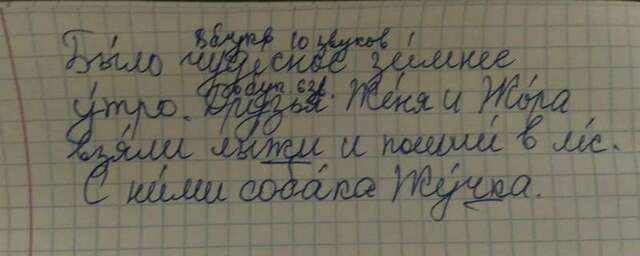 8 букв 10 звуков
Бы́ло чуде́сное зи́мнее
у́тро. Друзья́ Же́ня и Жо́ра
взя́ли лы́жи и пошли́ в лес.
С ни́ми соба́ка Жу́чка.